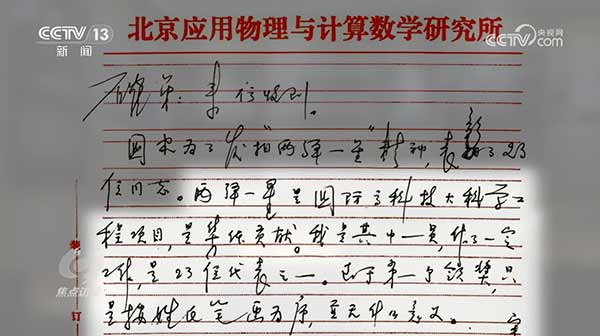 CCTV 13
新闻
央视网
CCTV.com
北京应用物理与计算数学研究所
弟：来信收到。
国家为了发扬“两弹一星”精神，表彰了23
位同志。两弹一星是国际高科技大科学工
程项目，是集体贡献。我是其中一员，做了一定
工作，是23位代表之一。至于第一个领奖，只
是按姓氏笔画为序，并无什么意义。
装
订
焦点访